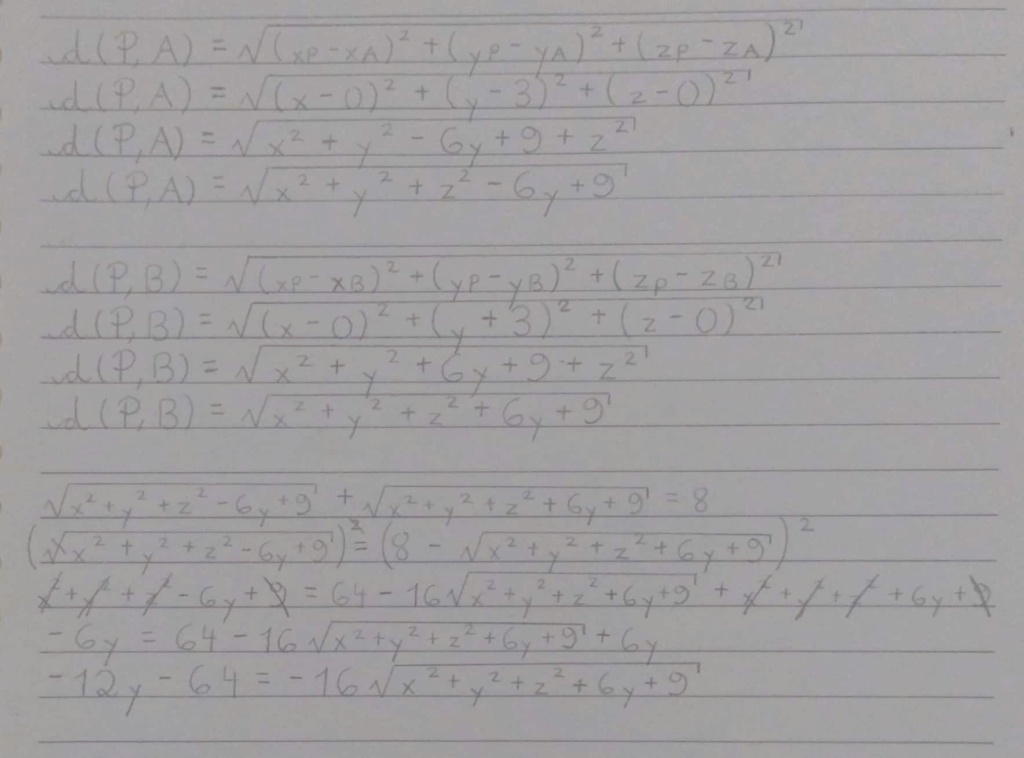 d(P,A) = √(xP - xA)² + (yP - yA)² + (zP - zA)²
d(P,A) = √(x - 0)² + (y - 3)² + (z - 0)²
d(P,A) = √x² + y² - 6y + 9 + z²
d(P,A) = √x² + y² + z² - 6y + 9
d(P,B) = √(xP - xB)² + (yP - yB)² + (zP - zB)²
d(P,B) = √(x - 0)² + (y + 3)² + (z - 0)²
d(P,B) = √x² + y² + 6y + 9 + z²
d(P,B) = √x² + y² + z² + 6y + 9
√x² + y² + z² - 6y + 9 + √x² + y² + z² + 6y + 9 = 8
(√x² + y² + z² - 6y + 9)² = (8 - √x² + y² + z² + 6y + 9)²
x² + y² + z² - 6y + 9 = 64 - 16√x² + y² + z² + 6y + 9 + x² + y² + z² + 6y + 9
- 6y = 64 - 16√x² + y² + z² + 6y + 9 + 6y
- 12y - 64 = - 16√x² + y² + z² + 6y + 9